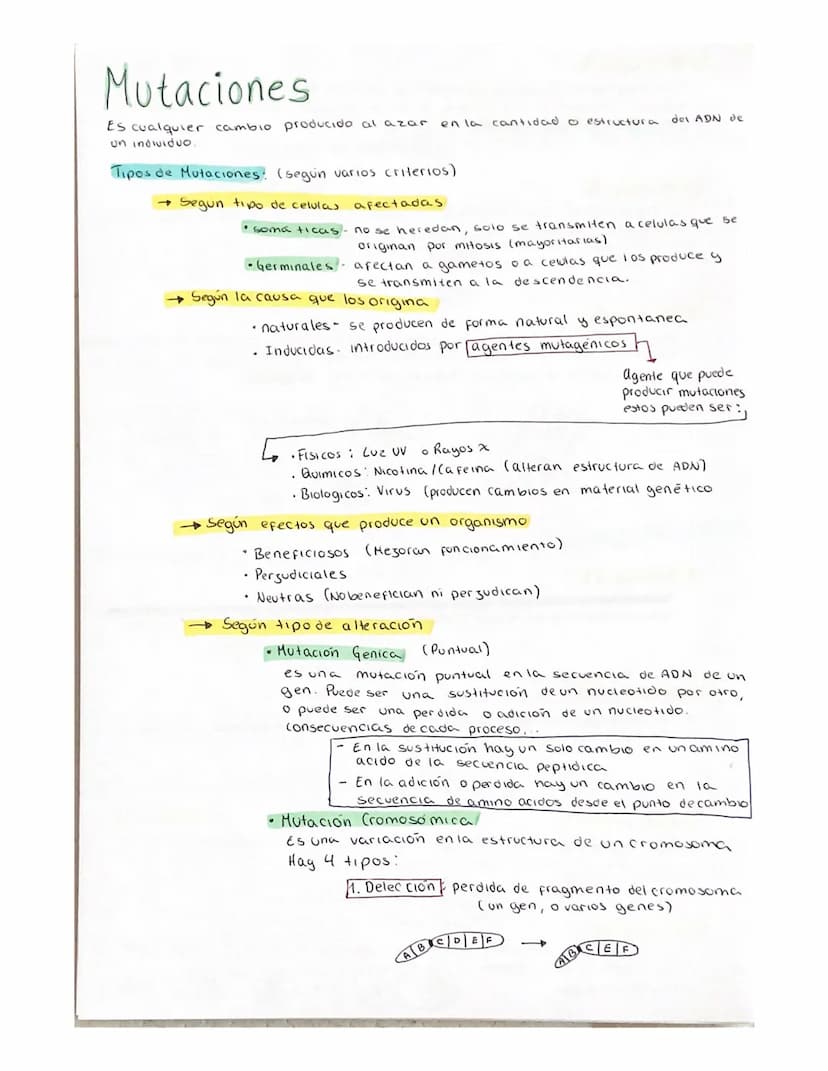 Mutaciones
Es cualquier cambio producido al azar en la cantidad o estructura del ADN de
un individuo.
Tipos de Mutaciones: (según varios criterios)
→ Segun tipo de celulas afectadas
• somáticas - no se heredan, solo se transmiten a celulas que se
originan por mitosis (mayoritarias)
• Germinales - afectan a gametos o a celulas que los produce y
se transmiten a la descendencia.
→ Según la causa que los origina
• naturales - se producen de forma natural y espontanea
• Inducidas - introducidos por agentes mutagénicos
Agente que puede
producir mutaciones
estos pueden ser:
• Físicos: Luz UV o Rayos x
• Químicos: Nicotina/Cafeína (alteran estructura de ADN)
• Biologicos: Virus (producen cambios en material genético
→ Según efectos que produce un organismo
• Beneficiosos (Mejoran funcionamiento)
• Perjudiciales
• Neutras (No benefician ni perjudican)
→ Según tipo de alteración
• Mutación Génica (Puntual)
es una mutación puntual en la secuencia de ADN de un
gen. Puede ser una sustitución de un nucleotido por otro,
o puede ser una perdida o adición de un nucleotido.
consecuencias de cada proceso...
- En la sustitución hay un solo cambio en un amino
acido de la secuencia peptidica
- En la adición o perdida hay un cambio en la
secuencia de amino acidos desde el punto de cambio
• Mutación Cromosómica
Es una variación en la estructura de un cromosoma
Hay 4 tipos:
1. Delección: perdida de fragmento del cromosoma
(un gen, o varios genes)
A B C D E F → A B C E F